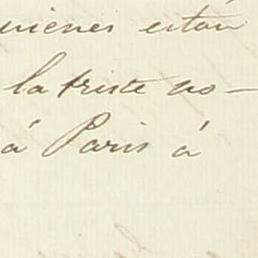 quienes están
la triste no-
á Paris á